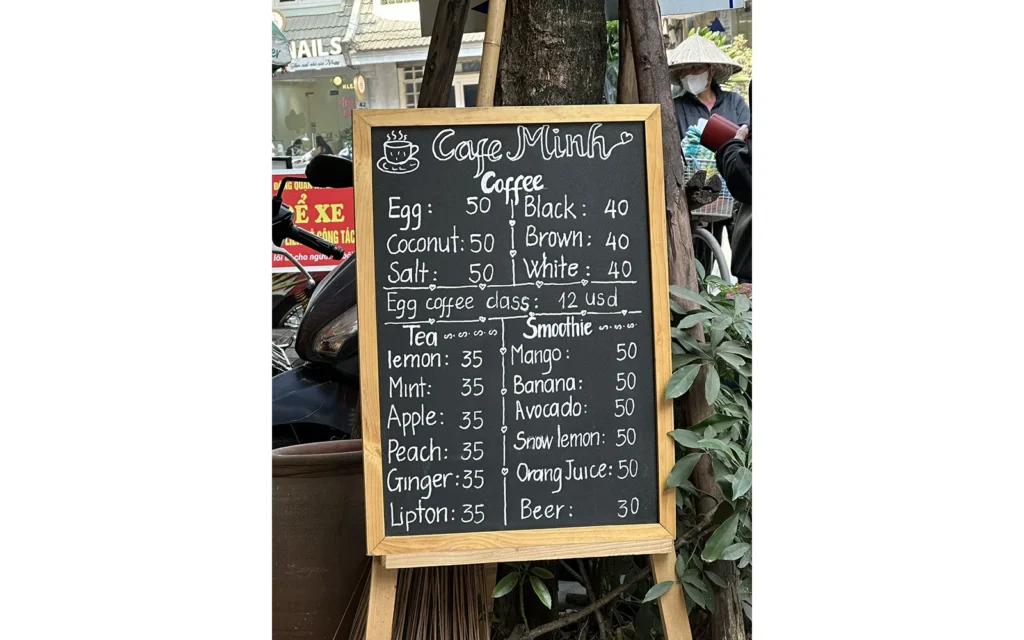 NAILS
Cafe Minh
Coffee
Egg: 50
Coconut: 50
Salt: 50
Black: 40
Brown: 40
White: 40
Egg coffee class: 12 usd
Tea
lemon: 35
Mint: 35
Apple: 35
Peach: 35
Ginger: 35
Lipton: 35
Smoothie
Mango: 50
Banana: 50
Avocado: 50
Snow lemon: 50
Orang Juice: 50
Beer: 30
ĐỂ XE